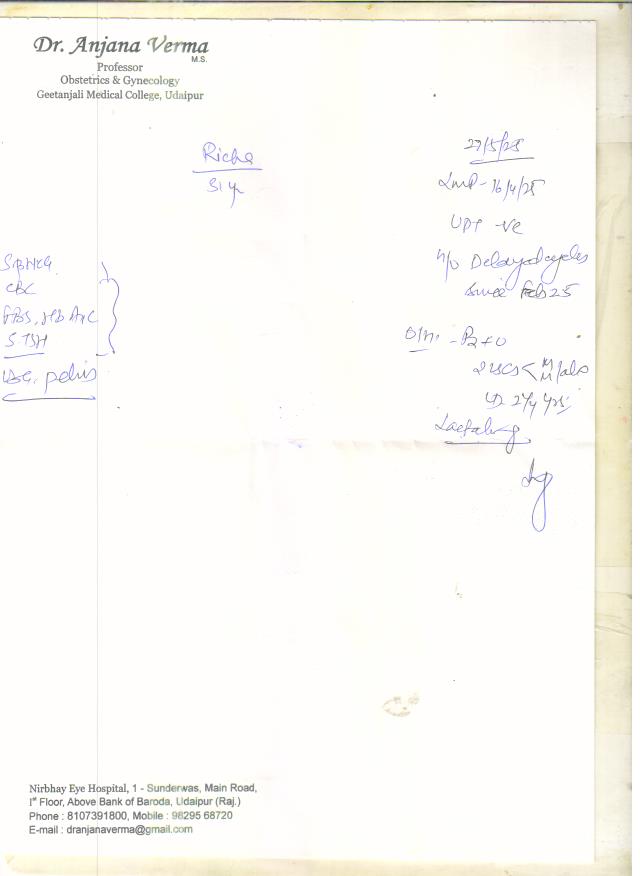 Dr. Anjana Verma
M.S.
Professor
Obstetrics & Gynecology
Geetanjali Medical College, Udaipur
Richa
31 yr
27/5/25
LMP - 16/4/25
UPT -ve
H/O Delayed cycles
since Feb 25
O/H - P2+0
2 LSCS < M/ alo
LD 2 1/4 yrs
Lactating
S.BHCG
CBC
FBS, Hb A1C
S TSH
USG. pelvis
Nirbhay Eye Hospital, 1 - Sunderwas, Main Road,
Ist Floor, Above Bank of Baroda, Udaipur (Raj.)
Phone : 8107391800, Mobile : 98295 68720
E-mail : dranjanaverma@gmail.com